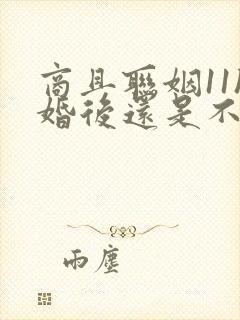 商且聯姻11
婚後還是不
雨塵